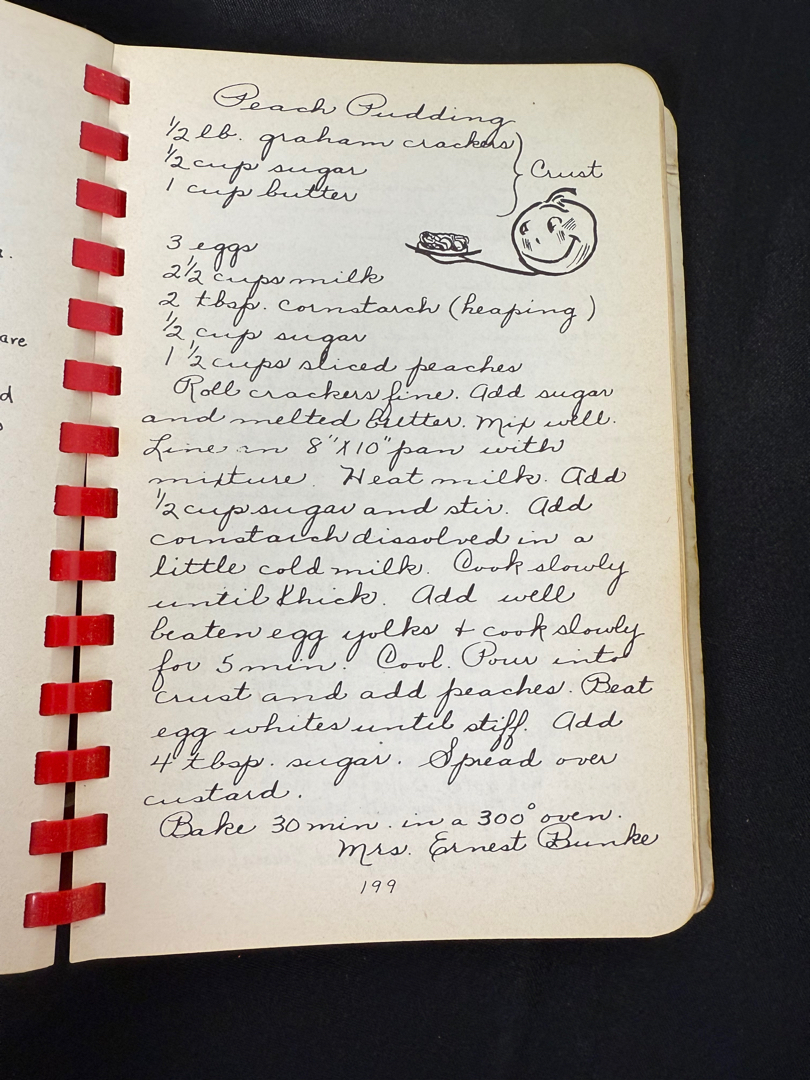 Peach Pudding
1/2 lb. graham crackers
1/2 cup sugar
1 cup butter
Crust
3 eggs
2 1/2 cups milk
2 tbsp. cornstarch (heaping)
1/2 cup sugar
1 1/2 cups sliced peaches
Roll crackers fine. Add sugar
and melted butter. Mix well.
Line an 8" X 10" pan with
mixture. Heat milk. Add
1/2 cup sugar and stir. Add
cornstarch dissolved in a
little cold milk. Cook slowly
until thick. Add well
beaten egg yolks + cook slowly
for 5 min. Cool. Pour into
crust and add peaches. Beat
egg whites until stiff. Add
4 tbsp. sugar. Spread over
custard.
Bake 30 min. in a 300° oven.
Mrs. Ernest Bunke
199
are
d